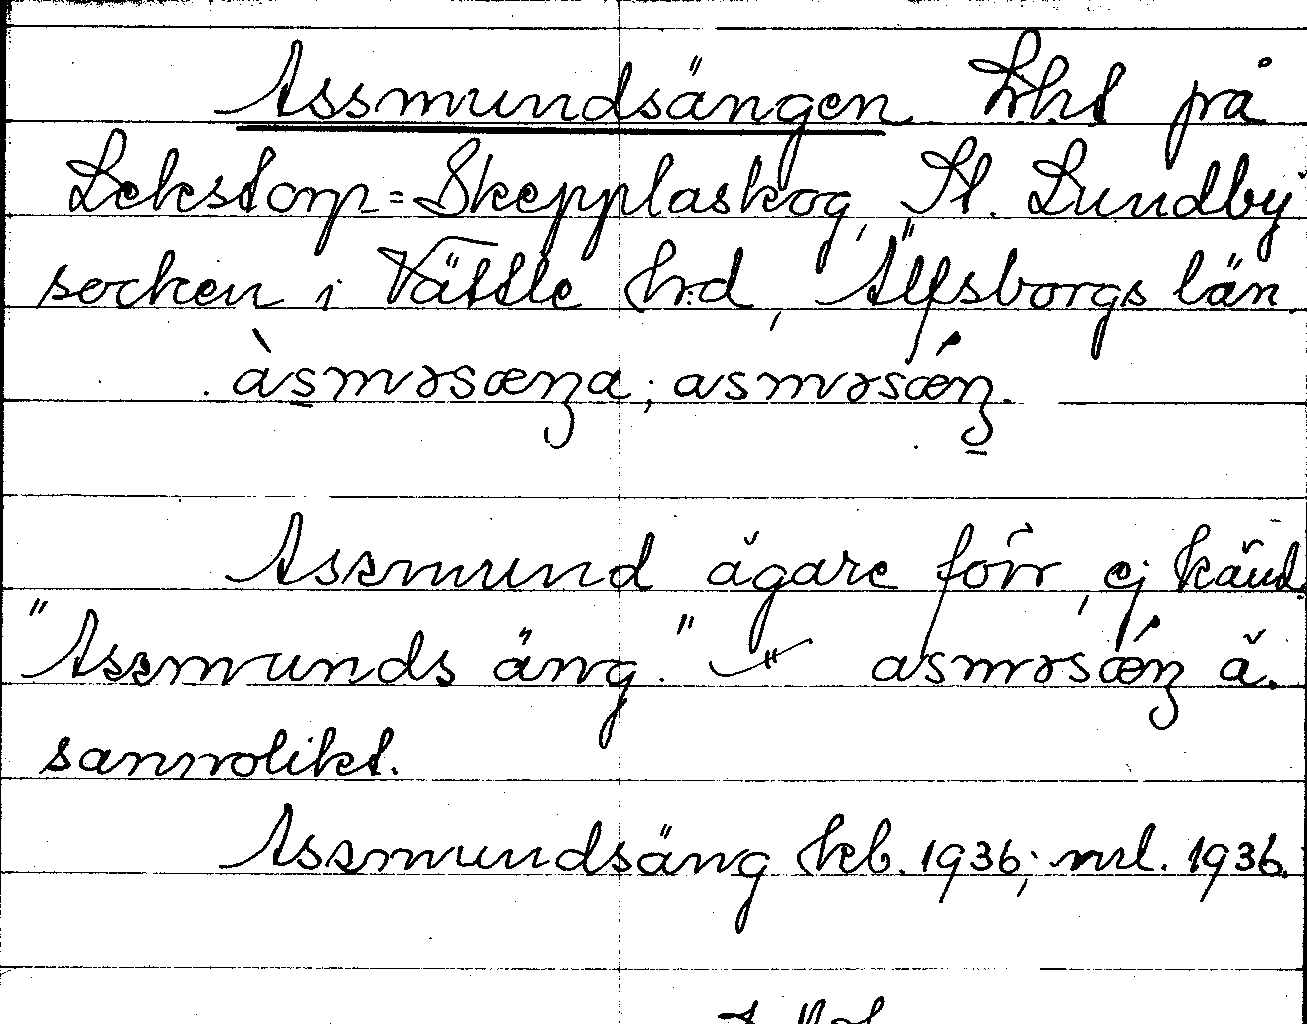 Assmundsängen Lht på
Lekstorp=Skepplaskog, St. Lundby
socken i Vättle hrd, Älfsborgs län.
àsmɘsæŋa; asmɘsǽŋ.
Assmund ägare förr, ej känd.
"Assmunds äng." asmɘsǽŋ ä.
sannolikt.
Assmundsäng kb. 1936; mrl. 1936.